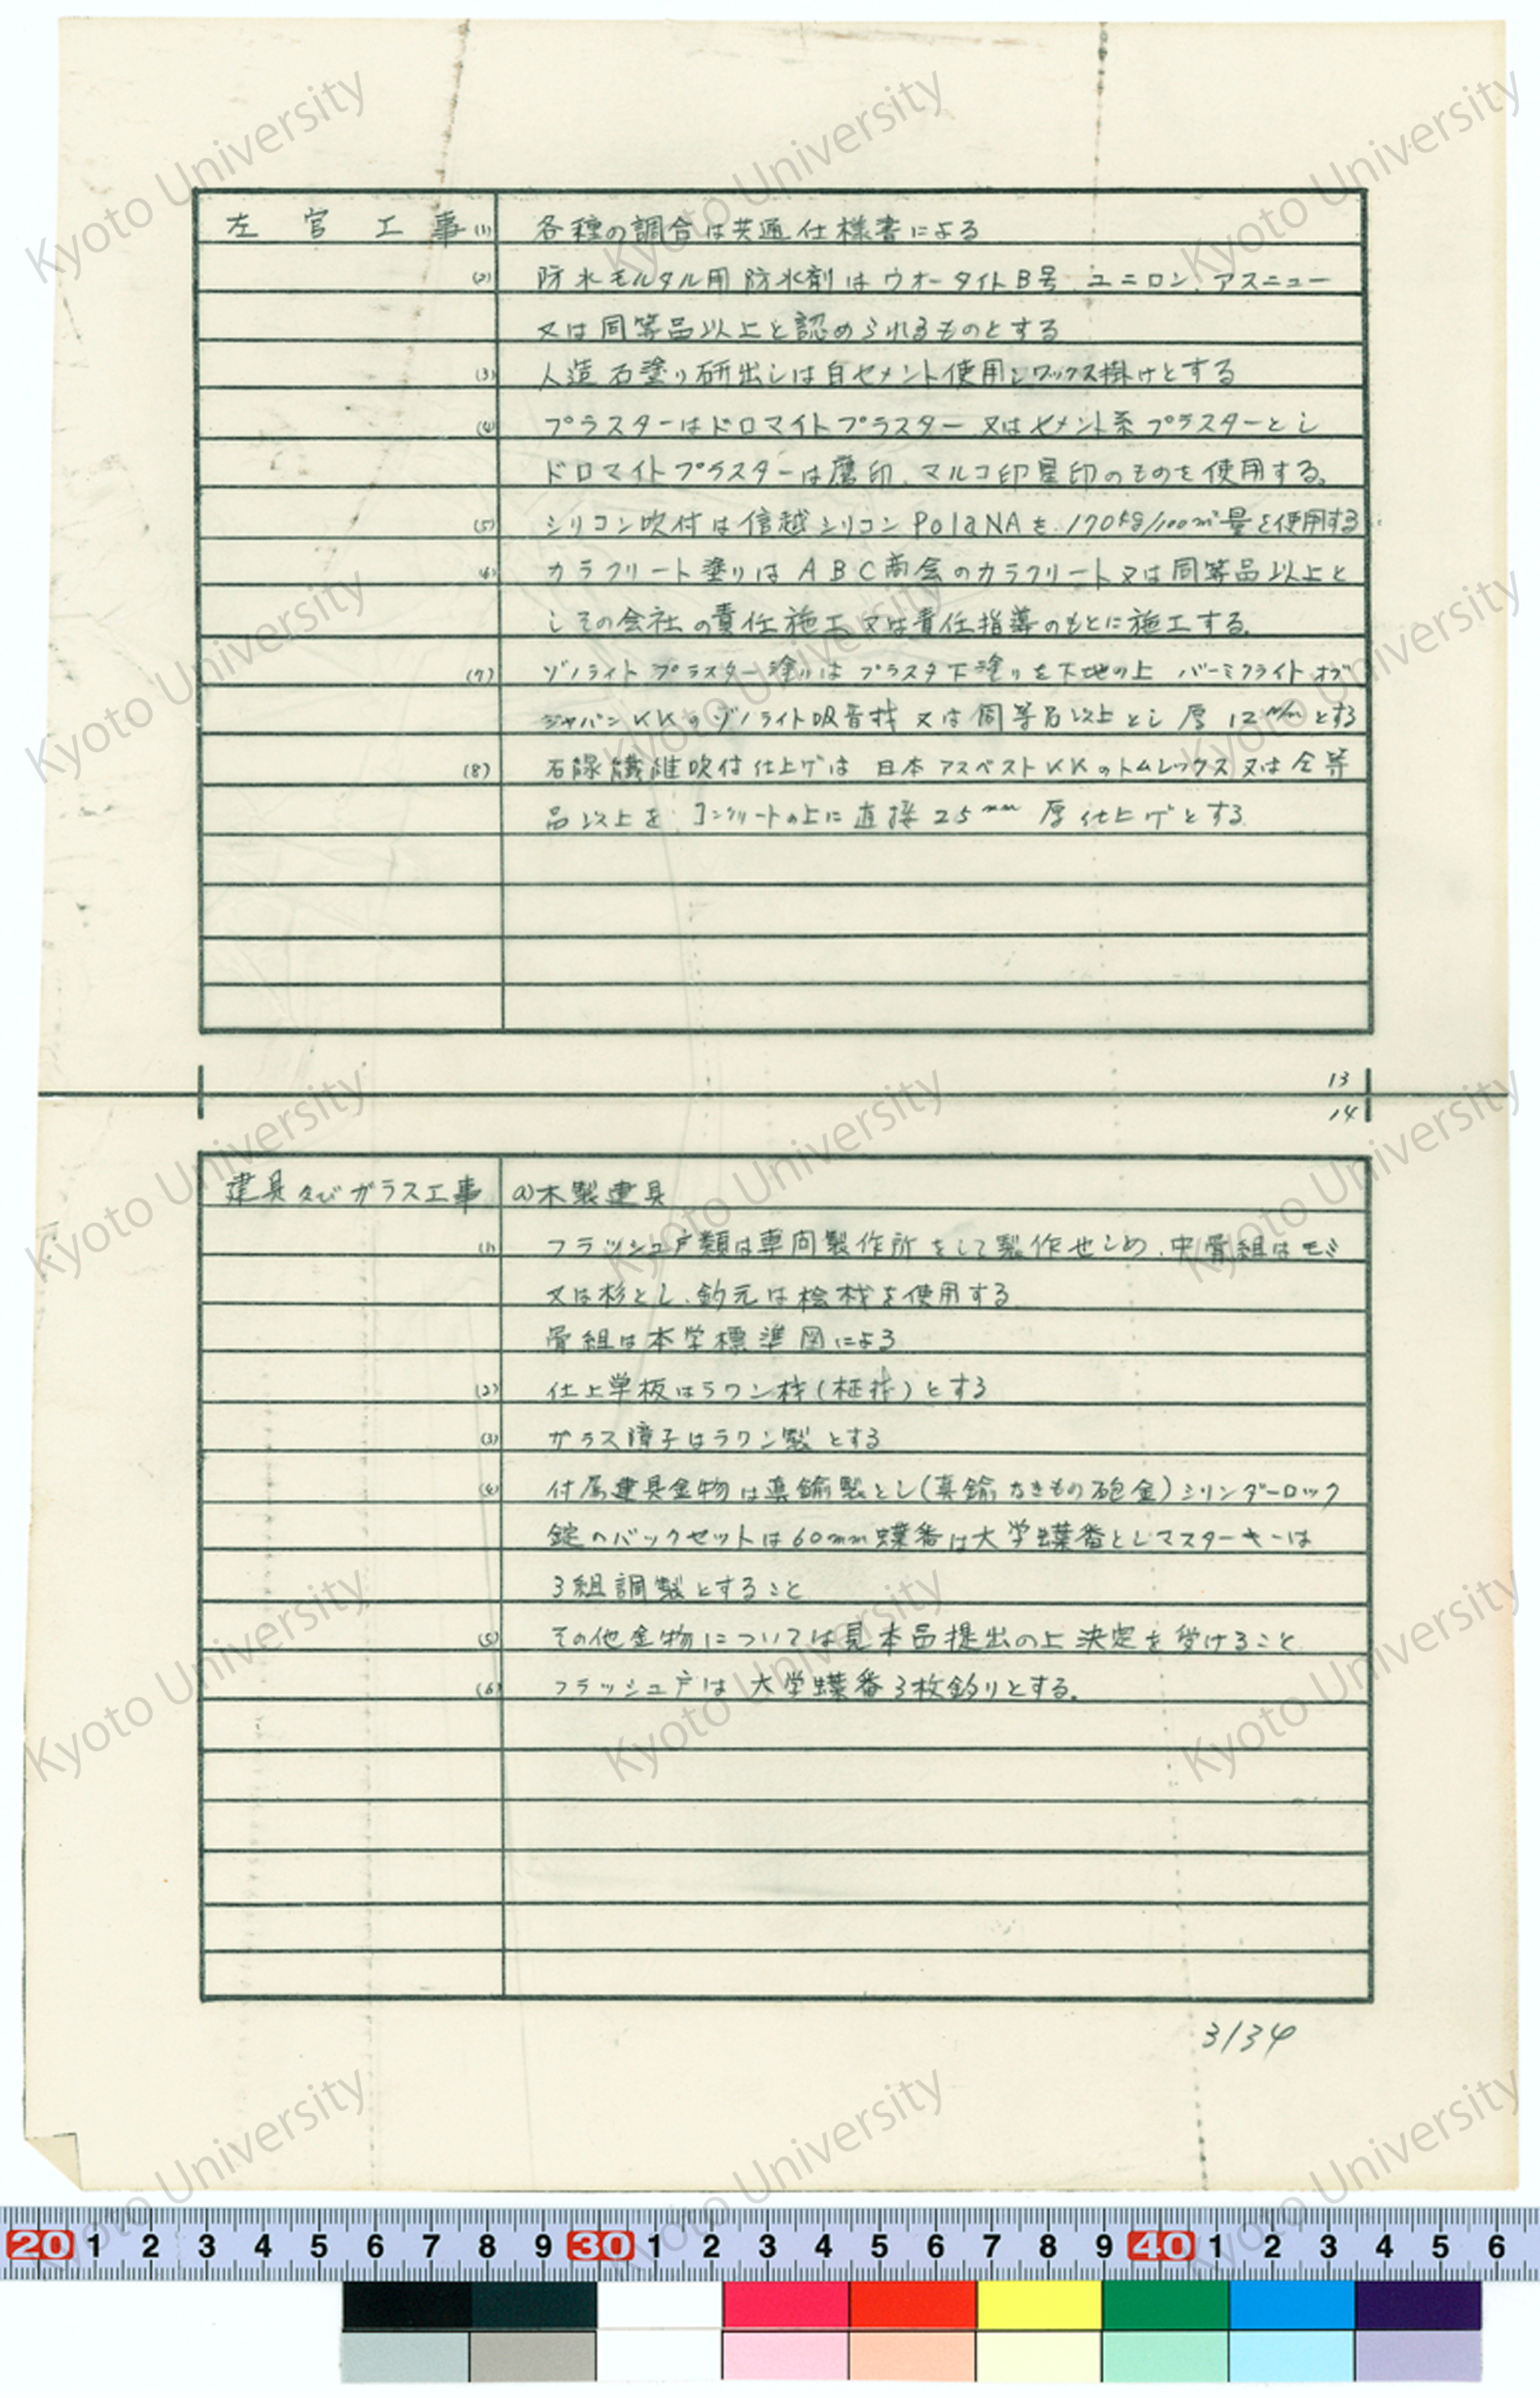 左官工事 (1) 各種の調合は共通仕様書による
(2) 防水モルタル用防水剤はウオータイトB号、ユニロン、アスニュー
又は同等品以上と認められるものとする
(3) 人造石塗り研出しは白セメント使用しワックス掛けとする
(4) プラスターはドロマイトプラスター又はセメント系プラスターとし
ドロマイトプラスターは鷹印、マルコ印星印のものを使用する。
(5) シリコン吹付は信越シリコンPolaNAを170kg/100m²量を使用する
(6) カラクリート塗りはABC商会のカラクリート又は同等品以上と
しその会社の責任施工又は責任指導のもとに施工する。
(7) ゾノライトプラスター塗りはプラスタ下塗りを下地の上 バーミクライトオブ
ジャパンKKのゾノライト吸音材又は同等品以上とし厚12m/mとする
(8) 石綿繊維吹付仕上げは日本アスベストKKのトムレックス又は仝等
品以上を コンクリートの上に直接25mm厚仕上げとする
13
14
建具及びガラス工事 a)木製建具
(1) フラッシュ戸類は専問製作所をして製作せしめ、中骨組はモミ
又は杉とし、釣元は桧材を使用する
骨組は本学標準図による
(2) 仕上単板はラワン材(柾材)とする
(3) ガラス障子はラワン製とする
(4) 付属建具金物は真鍮製とし(真鍮なきもの砲金)シリンダーロック
錠のバックセットは60mm蝶番は大学蝶番としマスターキーは
3組調製とすること
(5) その他金物については見本品提出の上決定を受けること
(6) フラッシュ戸は大学蝶番3枚釣りとする。
3134
Kyoto University
20 1 2 3 4 5 6 7 8 9 30 1 2 3 4 5 6 7 8 9 40 1 2 3 4 5 6